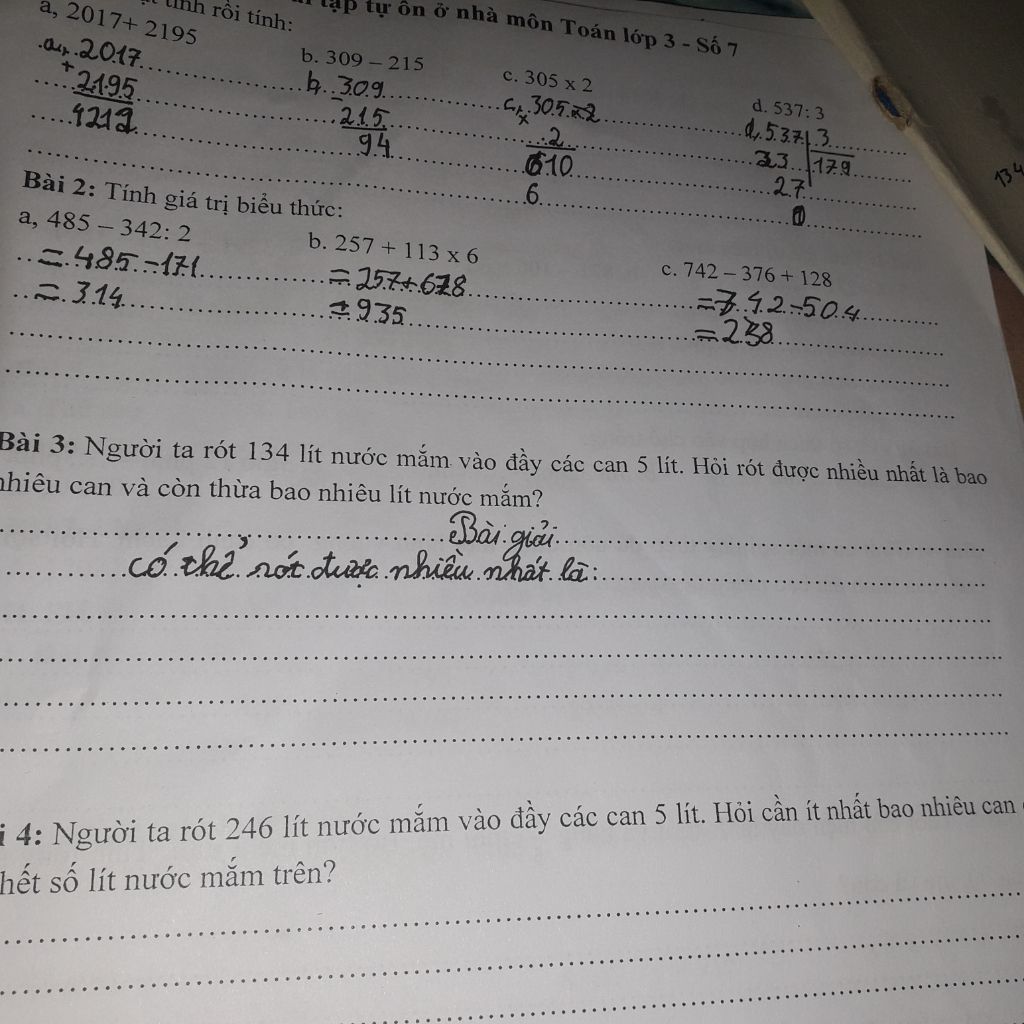 tập tự ôn ở nhà môn Toán lớp 3 - Số 7
tính rồi tính:
a, 2017+ 2195 b. 309 – 215 c. 305 x 2 d. 537: 3
a, 2017 b, 309 c, 305 x 2 d, 537 3
+ 2195 - 215 x 2 23 179
4212 94 610 27
6 0
Bài 2: Tính giá trị biểu thức:
a, 485 – 342: 2 b. 257 + 113 x 6 c. 742 – 376 + 128
= 485 - 171 = 257 + 678 = 742 - 504
= 314 = 935 = 238
Bài 3: Người ta rót 134 lít nước mắm vào đầy các can 5 lít. Hỏi rót được nhiều nhất là bao
nhiêu can và còn thừa bao nhiêu lít nước mắm?
Bài giải
có thể rót được nhiều nhất là:
i 4: Người ta rót 246 lít nước mắm vào đầy các can 5 lít. Hỏi cần ít nhất bao nhiêu can
hết số lít nước mắm trên?
134